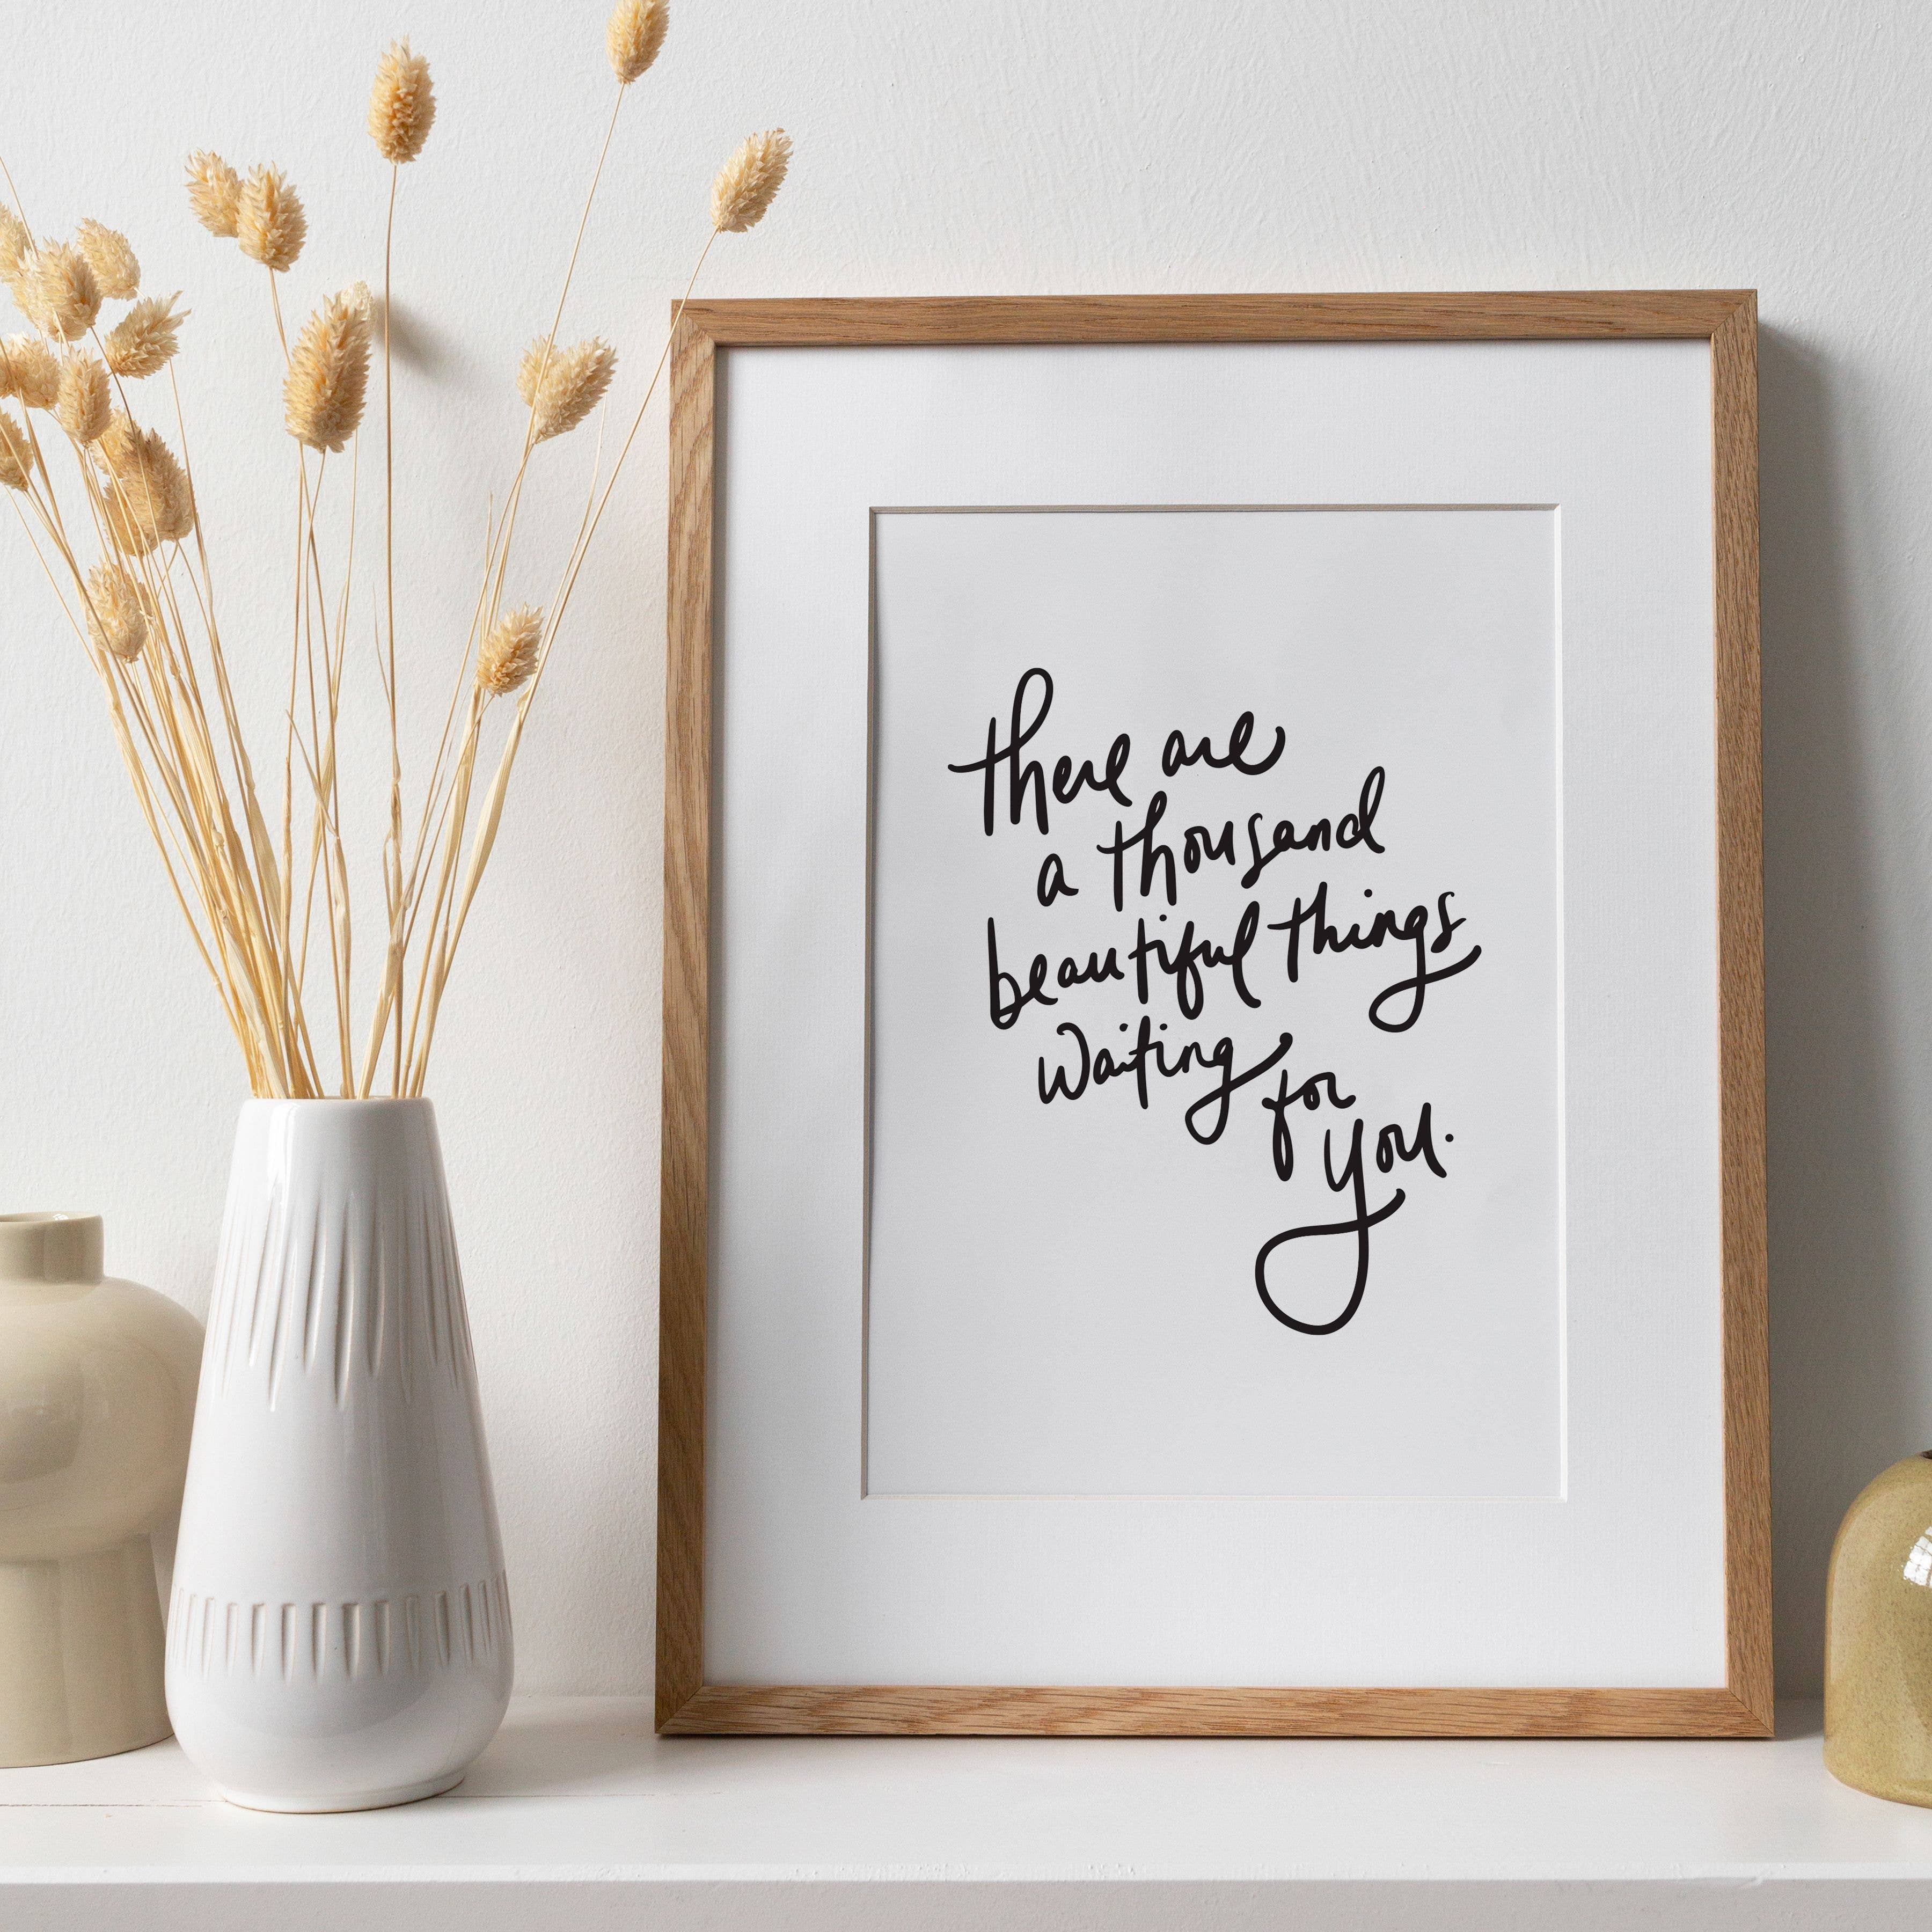 there are
a thousand
beautiful things
waiting for
you.